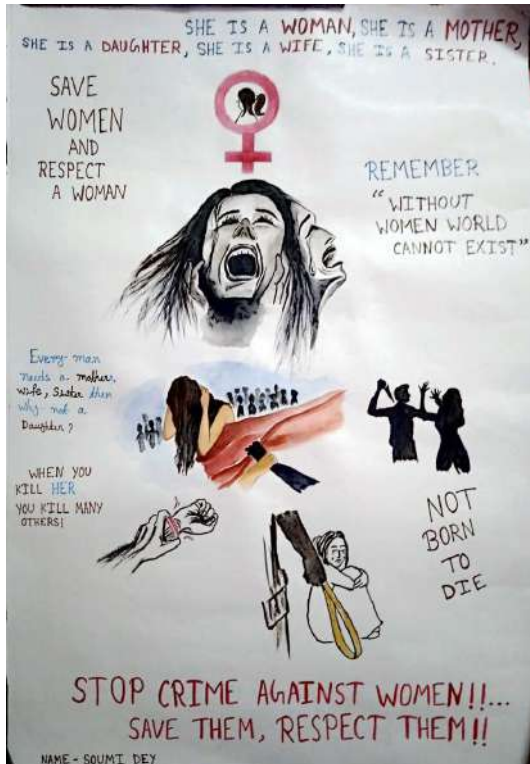 SHE IS A WOMAN, SHE IS A MOTHER,
SHE IS A DAUGHTER, SHE IS A WIFE, SHE IS A SISTER.
SAVE
WOMEN
AND
RESPECT
A WOMAN
REMEMBER
"WITHOUT
WOMEN WORLD
CANNOT EXIST"
Every man
needs a mother,
wife, Sister then
why not a
Daughter?
WHEN YOU
KILL HER
YOU KILL MANY
OTHERS!
NOT
BORN
TO
DIE
STOP CRIME AGAINST WOMEN!!...
SAVE THEM, RESPECT THEM!!
NAME - SOUMI DEY